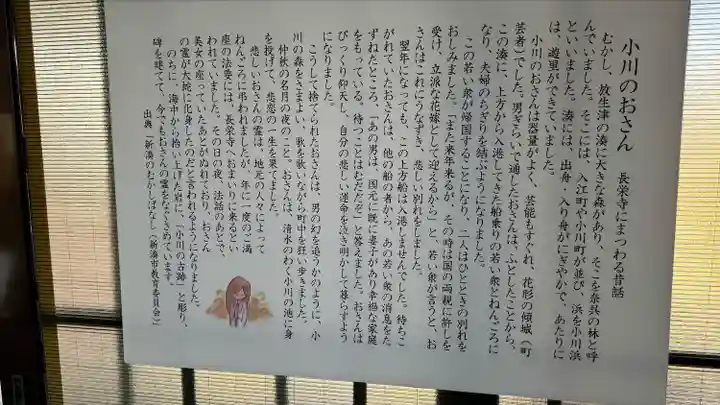 小川のおさん　長栄寺にまつわる昔話
むかし、放生津の湊に大きな森があり、そこを奈呉の林と呼
んでいました。そこには、入江町や小川町が並び、浜を小川浜
といいました。湊には、出舟、入り舟がにぎやかで、あたりに
は、遊里ができていました。
小川のおさんは器量がよく、芸能もすぐれ、花形の傾城（町
芸者）でした。男ぎらいで通したおさんは、ふとしたことから、
この湊に、上方から入港してきた船乗りの若い衆とねんごろに
なり、夫婦のちぎりを結ぶようになりました。
この若い衆が帰国することになり、二人はひとときの別れを
おしみました。「また来年来るが、その時は国の両親に許しを
受け、立派な花嫁として迎えるから」と、若い衆が言うと、お
さんはこれにうなずき、悲しい別れをしました。
翌年になっても、この上方船は入港しませんでした。待ちこ
がれていたおさんは、他の船の者から、あの若い衆の消息をた
ずねたところ、「あの男は、国元に既に妻子があり幸福な家庭
をもっている。待つことはむだだぞ」と答えました。おさんは
びっくり仰天し、自分の悲しい運命を泣き明かして暮らすよう
になりました。
こうして捨てられたおさんは、男の幻を追うかのように、小
川の森をさまよい、歌を歌いながら町中を狂い歩きました。
仲秋の名月の夜のこと、おさんは、清水のわく小川の池に身
を投げて、悲恋の一生を果てました。
悲しいおさんの霊は、地元の人々によって
ねんごろに弔われましたが、年に一度のご満
座の法要には、長栄寺へおまいりに来るとい
われていました。その日の夜、法話のあとで、
美女の座っていたあとがぬれており、おさん
の霊が大蛇に化身したのだと言われるようになりました。
のちに、海中から拾い上げた岩に、「小川の古跡」と彫り、
碑を建てて、今でもおさんの霊をなぐさめています。
出典「新湊のむかしばなし（新湊市教育委員会）